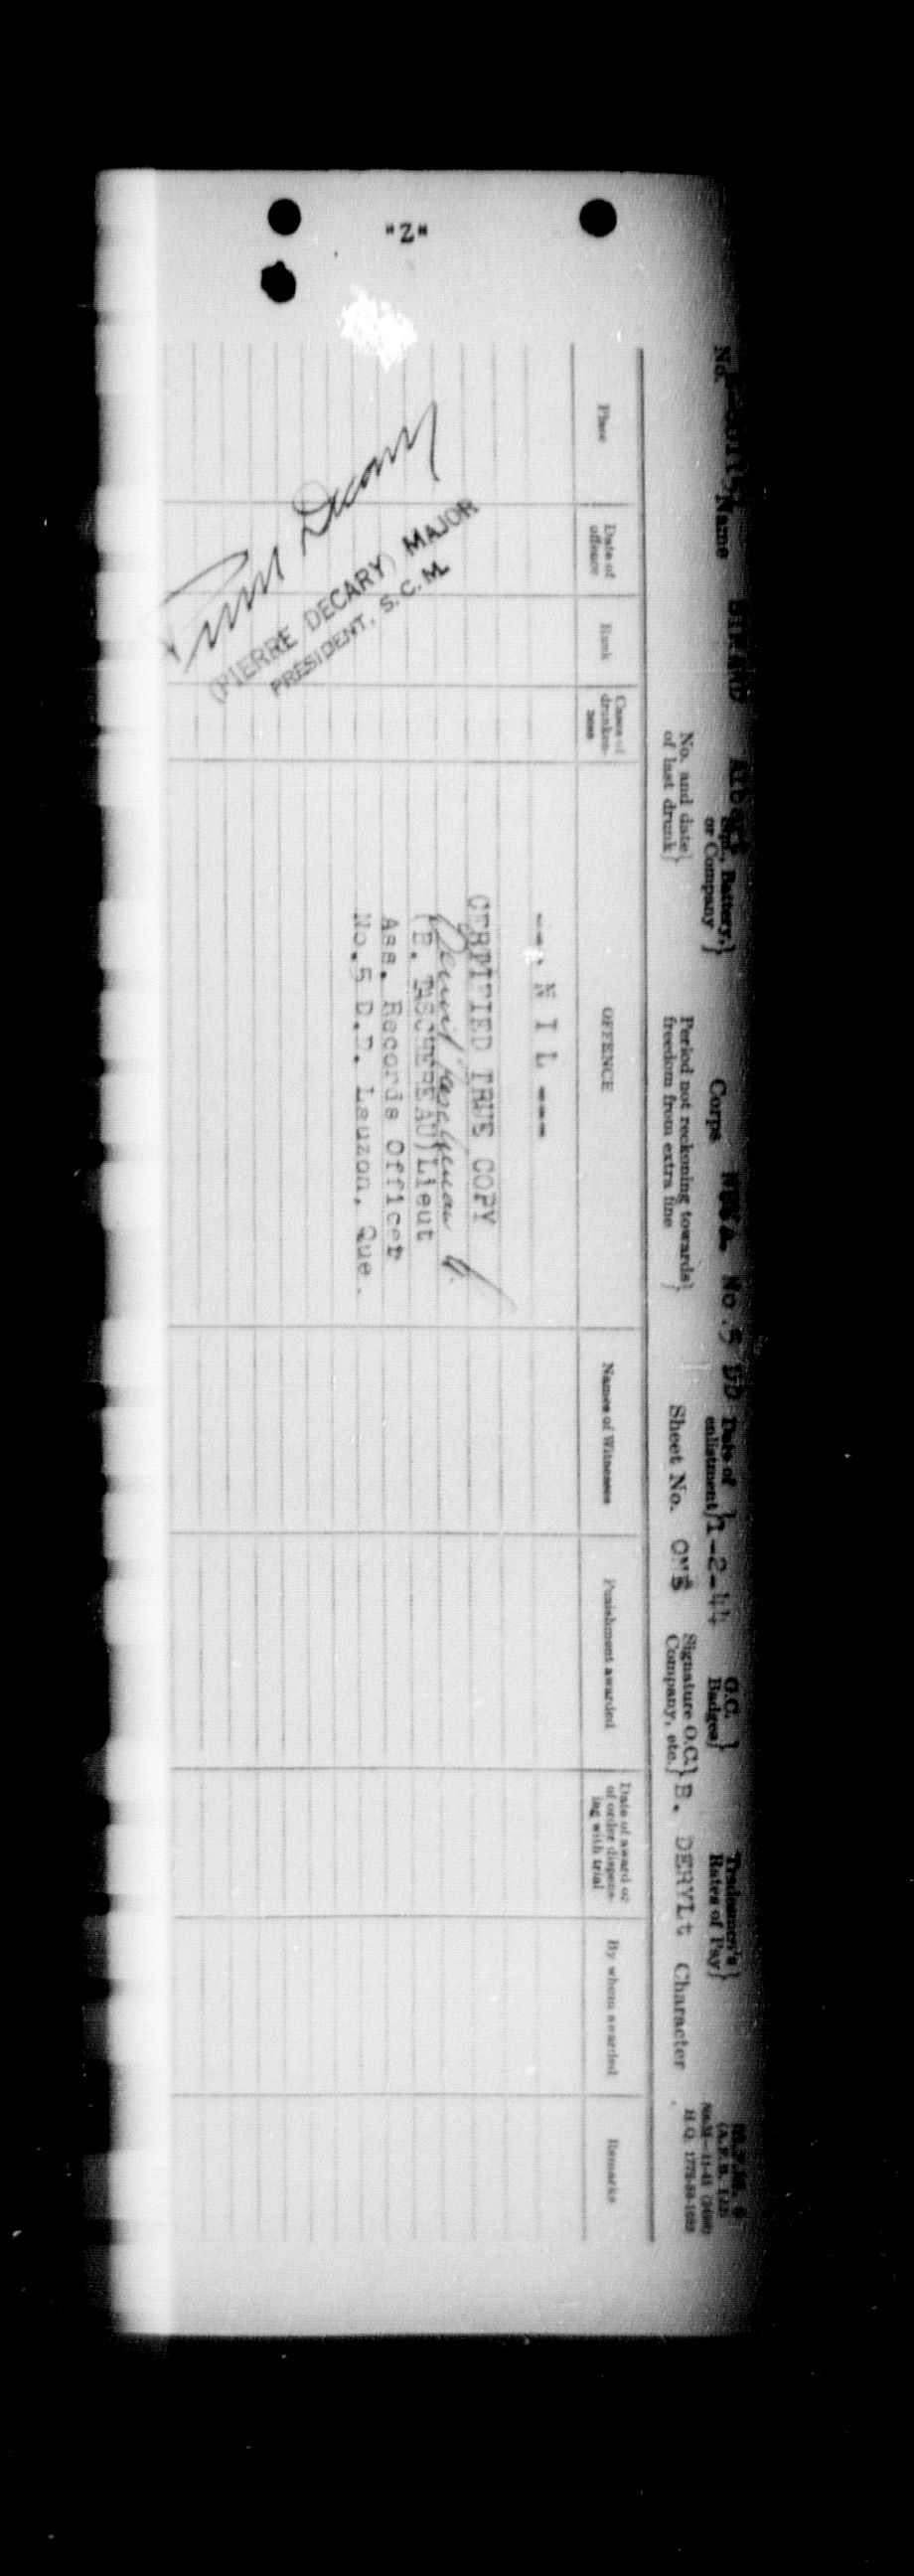 "Z"
No. Name
Battery,
or Company
Corps No.5 DD
Date of
enlistment 1-2-44
G.C.
Badges
Tradesmen's
Rates of Pay
No. and date
of last drunk
Period not reckoning towards
freedom from extra fine
Sheet No. ONE
Signature O.C.
Company, etc. B. DERYLt
Character
Place
Date of
offence
Rank
Cases of
drunken-
ness
OFFENCE
Names of Witnesses
Punishment awarded
Date of award or
of order dispens-
ing with trial
By whom awarded
Remarks
--- N I L ---
CERTIFIED TRUE COPY
(B. TASCHEREAU)Lieut
Ass. Records Officer
No.5 D.D. Lauzon, Que.
Pierre Decary
(PIERRE DECARY) MAJOR
PRESIDENT, S.C.M.